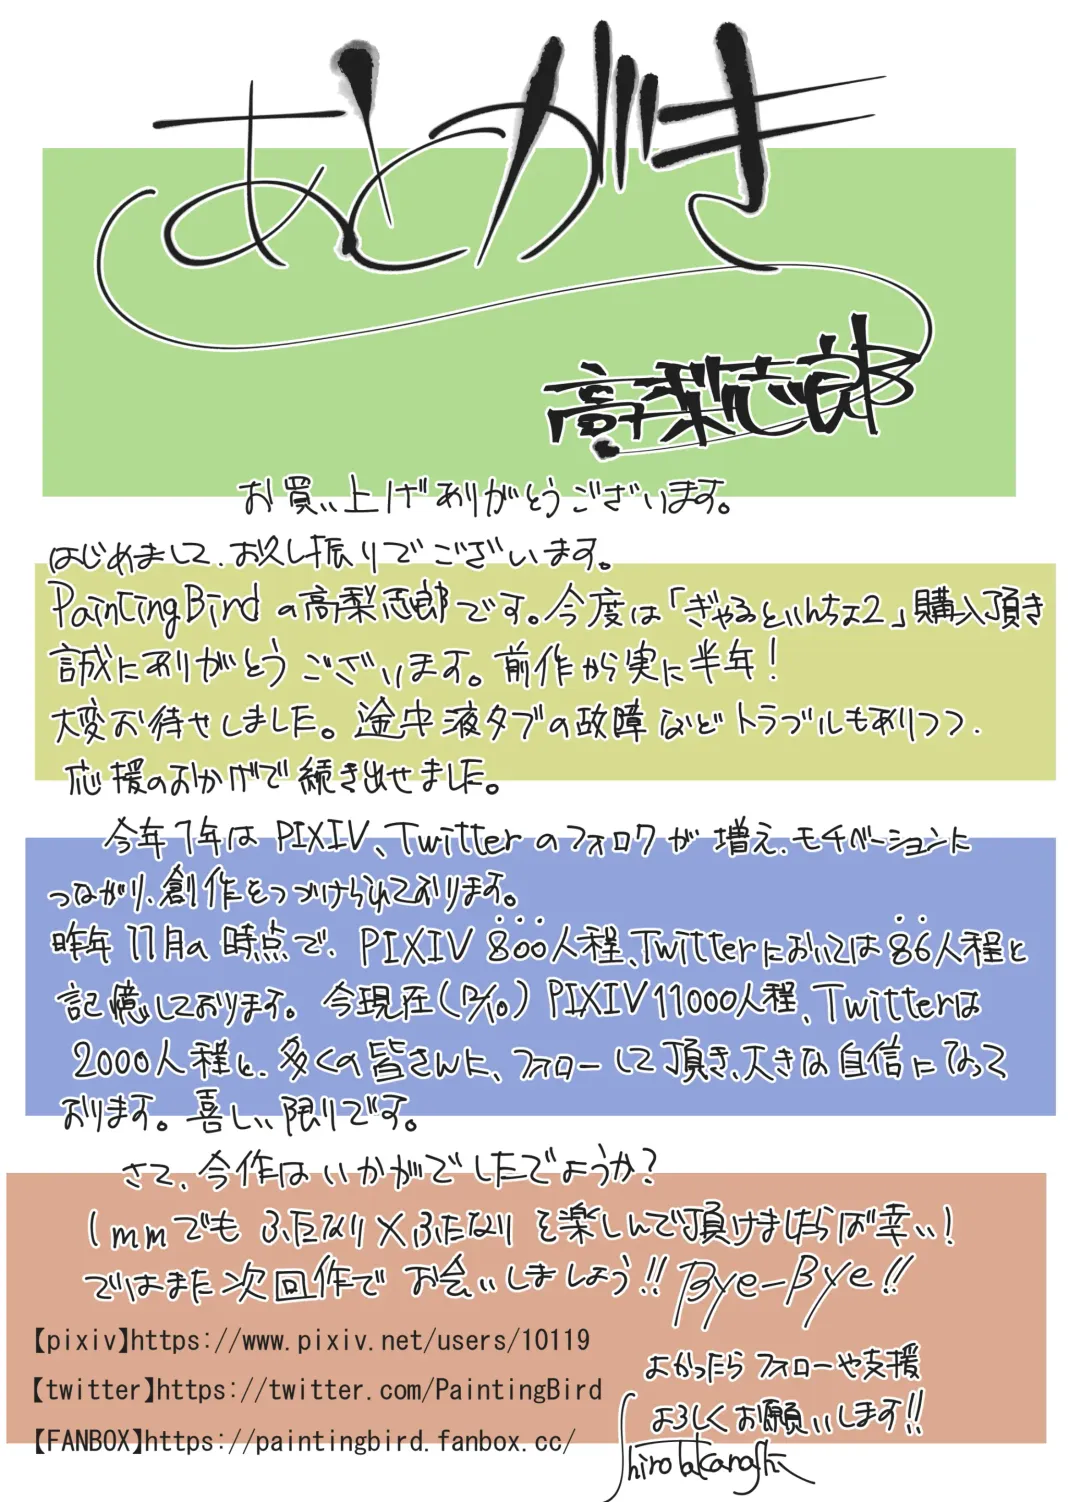 あとがき
高梨志郎
お買い上げありがとうございます。
はじめまして、お久し振りでございます。
PaintingBirdの高梨志郎です。今度は「ぎゃるといんちょ2」購入頂き
誠にありがとうございます。前作から実に半年!
大変お待せしました。途中液タブの故障などトラブルもありつつ、
応援のおかげで続き出せました。
今年1年はPIXIV、Twitterのフォロワが増え、モチベーションに
つながり、創作をつづけられております。
昨年11月の時点で、PIXIV800人程、Twitterにおいては86人程と
記憶しております。今現在(12/10)PIXIV11000人程、Twitterは
2000人程と、多くの皆さんに、フォローして頂き、大きな自信になって
おります。喜しい限りです。
さて、今作はいかがでしたでしょうか?
1mmでもふたなり×ふたなりを楽しんで頂けましたらば幸い!
ではまた次回作でお会いしましょう!!Bye-Bye!!
【pixiv】https://www.pixiv.net/users/10119
【twitter】https://twitter.com/PaintingBird
【FANBOX】https://paintingbird.fanbox.cc/
よかったらフォローや支援
よろしくお願いします!!
Shiro Takanashi